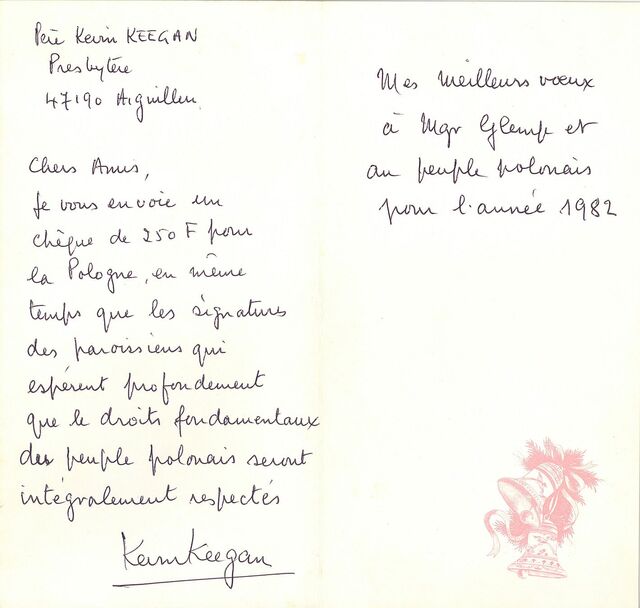 Père Kevin KEEGAN
Presbytère
47190 Aiguillon
Chers Amis,
Je vous envoie un
chèque de 250 F pour
la Pologne, en même
temps que les signatures
des paroissiens qui
espèrent profondement
que le droits fondamentaux
des peuple polonais seront
intégralement respectés
Kevin Keegan
Mes meilleurs vœux
à Mgr Glemp et
au peuple polonais
pour l'année 1982